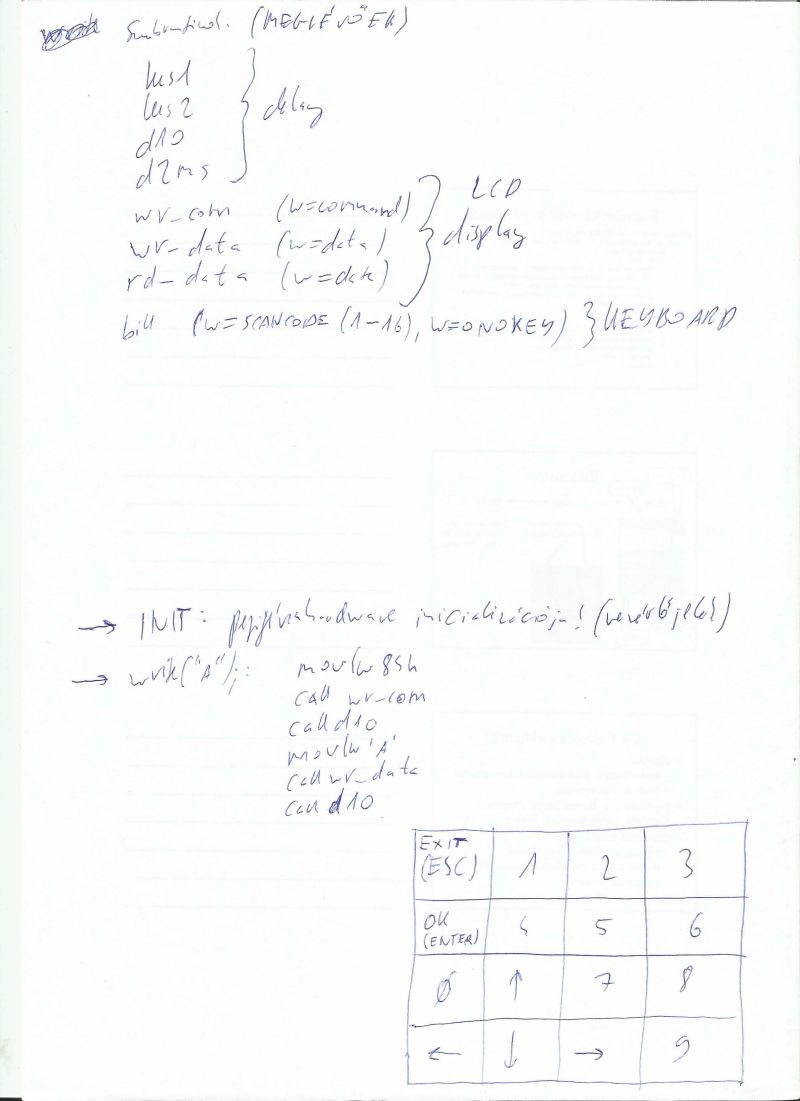 (MEGLÉVŐEK)
kes1
kes2
d10
d2ms
} delay
wr_com (w=command)
wr-data (w=data)
rd-data (w=data)
} LCD
display
bill (w=SCANCODE (1-16), w=0 NOKEY) } KEYBOARD
→ INIT: inicializációja! (vezérlőjelek)
→ write("A");:
movlw 85h
call wr-com
call d10
movlw 'A'
call wr_data
call d10
EXIT
(ESC) 1 2 3
OK
(ENTER) 4 5 6
Ø ↑ 7 8
← ↓ → 9